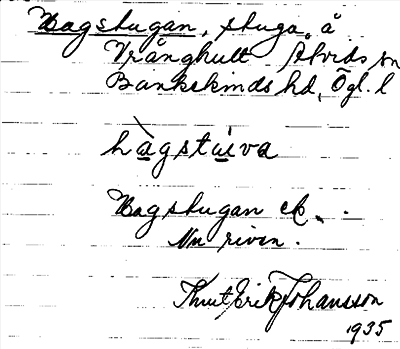 Hagstugan, stuga å
Vrånghult Atvids sn
Bankekinds hd, Ögl. l
hàgstuiva
Hagstugan ek.
Nu riven.
Knut Erik Johansson
1935